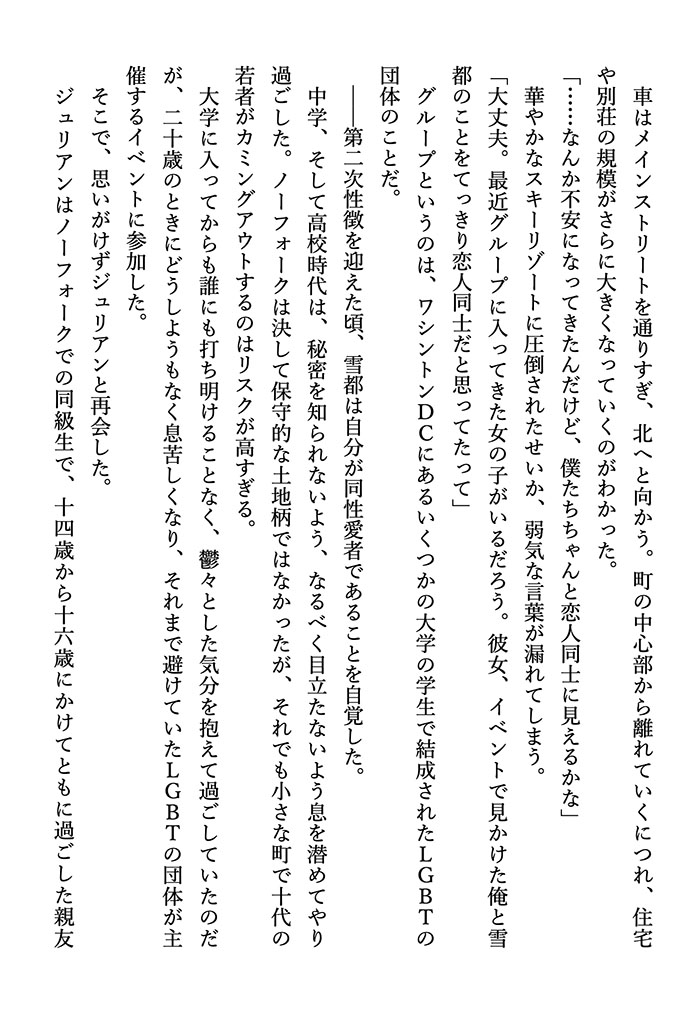 車はメインストリートを通りすぎ、北へと向かう。町の中心部から離れていくにつれ、住宅
や別荘の規模がさらに大きくなっていくのがわかった。
「……なんか不安になってきたんだけど、僕たちちゃんと恋人同士に見えるかな」
　華やかなスキーリゾートに圧倒されたせいか、弱気な言葉が漏れてしまう。
「大丈夫。最近グループに入ってきた女の子がいるだろう。彼女、イベントで見かけた俺と雪
都のことをてっきり恋人同士だと思ってたって」
　グループというのは、ワシントンＤＣにあるいくつかの大学の学生で結成されたＬＧＢＴの
団体のことだ。
　――第二次性徴を迎えた頃、雪都は自分が同性愛者であることを自覚した。
　中学、そして高校時代は、秘密を知られないよう、なるべく目立たないよう息を潜めてやり
過ごした。ノーフォークは決して保守的な土地柄ではなかったが、それでも小さな町で十代の
若者がカミングアウトするのはリスクが高すぎる。
　大学に入ってからも誰にも打ち明けることなく、鬱々とした気分を抱えて過ごしていたのだ
が、二十歳のときにどうしようもなく息苦しくなり、それまで避けていたＬＧＢＴの団体が主
催するイベントに参加した。
　そこで、思いがけずジュリアンと再会した。
　ジュリアンはノーフォークでの同級生で、十四歳から十六歳にかけてともに過ごした親友